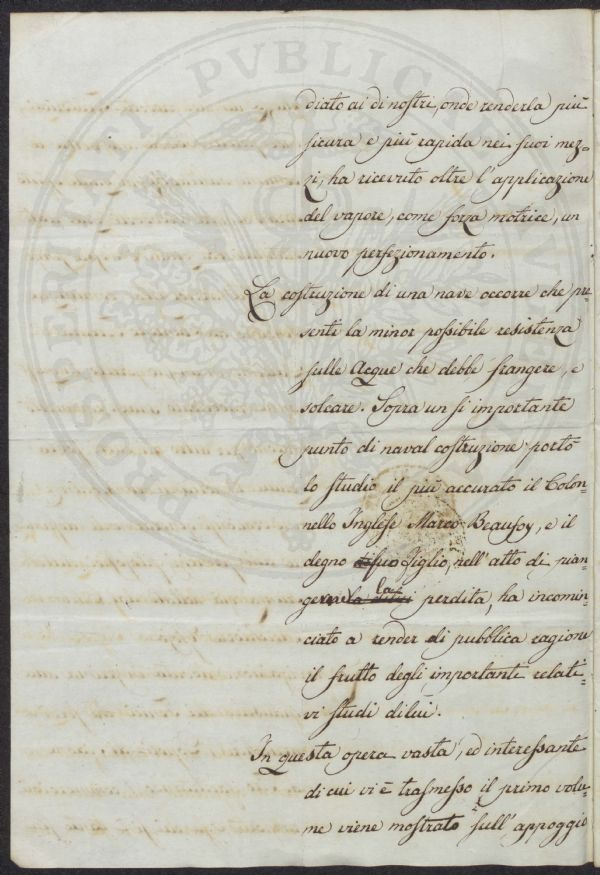 diato ai dì nostri, onde renderla più
sicura e più rapida nei suoi mez=
zi, ha ricevuto oltre l'applicazione
del vapore, come forza motrice, un
nuovo perfezionamento.
La costruzione di una nave occorre che pre
senti la minor possibile resistenza
sulle Acque che debbe frangere, e
solcare. Sopra un sì importante
punto di naval costruzione portò
lo studio il più accurato il Colon=
nello Inglese Marco Beaufoy, e il
degno suo Figlio, nell'atto di pian=
gerne la perdita, ha incomin=
ciato a render di pubblica ragione
il frutto degli importanti relati=
vi studi di lui.
In questa opera vasta, ed interessante
di cui vi è trasmesso il primo volu=
me viene mostrato sull'appoggio
PROSPERITATI PVBLICAE